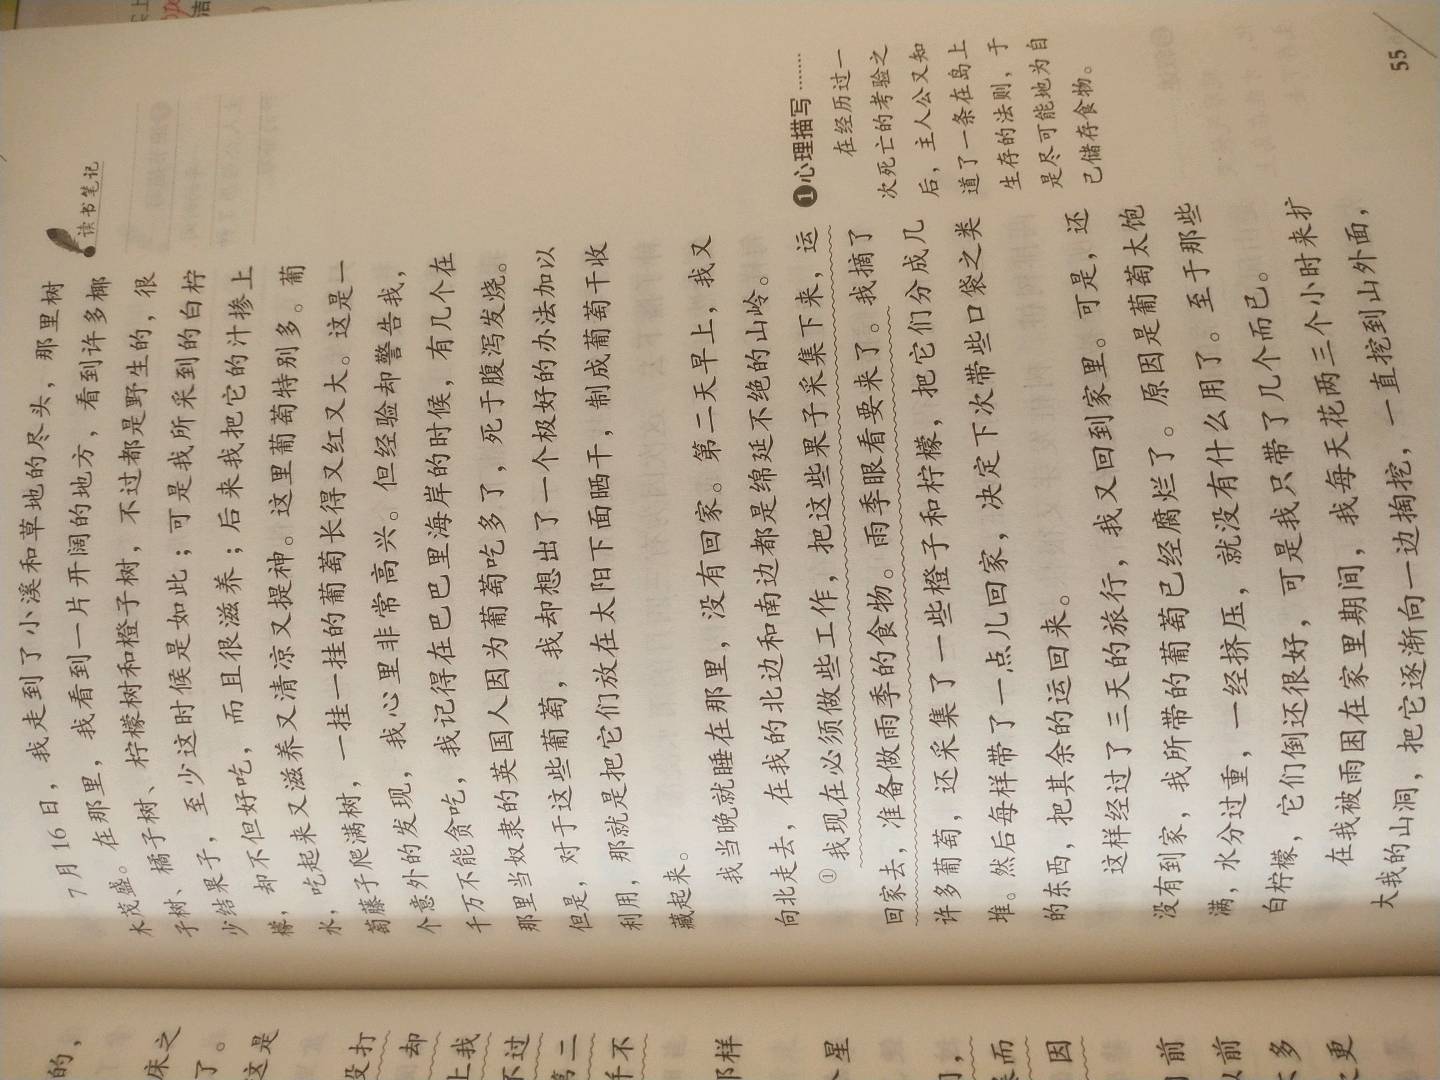 读书笔记
7月16日，我走到了小溪和草地的尽头，那里树
木茂盛。在那里，我看到一片开阔的地方，看到许多椰
子树、橘子树、柠檬树和橙子树，不过都是野生的，很
少结果子，至少这时候是如此；可是我所采到的白柠
檬，却不但好吃，而且很滋养；后来我把它的汁掺上
水，吃起来又滋养又清凉又提神。这里葡萄特别多。葡
萄藤子爬满树，一挂一挂的葡萄长得又红又大。这是一
个意外的发现，我心里非常高兴。但经验却警告我，
千万不能贪吃，我记得在巴巴里海岸的时候，有几个在
那里当奴隶的英国人因为葡萄吃多了，死于腹泻发烧。
但是，对于这些葡萄，我却想出了一个极好的办法加以
利用，那就是把它们放在太阳下面晒干，制成葡萄干收
藏起来。
我当晚就睡在那里，没有回家。第二天早上，我又
向北走去，在我的北边和南边都是绵延不绝的山岭。
①我现在必须做些工作，把这些果子采集下来，运
回家去，准备做雨季的食物。雨季眼看要来了。我摘了
许多葡萄，还采集了一些橙子和柠檬，把它们分成几
堆。然后每样带了一点儿回家，决定下次带些口袋之类
的东西，把其余的运回来。
这样经过了三天的旅行，我又回到家里。可是，还
没有到家，我所带的葡萄已经腐烂了。原因是葡萄太饱
满，水分过重，一经挤压，就没有什么用了。至于那些
白柠檬，它们倒还很好，可是我只带了几个而已。
在我被雨困在家里期间，我每天花两三个小时来扩
大我的山洞，把它逐渐向一边掏挖，一直挖到山外面，
❶心理描写……
在经历过一
次死亡的考验之
后，主人公又知
道了一条在岛上
生存的法则，于
是尽可能地为自
己储存食物。
55
的，
床之
了。
这是
没打
却
上我
不过
第二
千不
那样
星
而
因
前
前
多
更